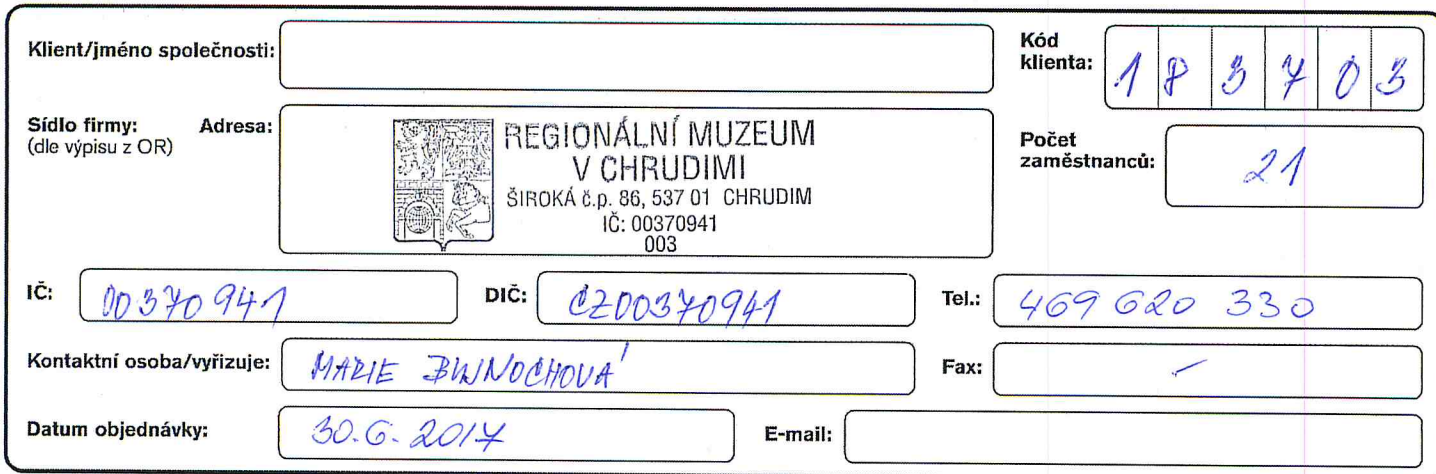 Klient/jméno společnosti:
Kód klienta: 183703
Sídlo firmy: Adresa:
(dle výpisu z OR)
REGIONÁLNÍ MUZEUM
V CHRUDIMI
ŠIROKÁ č.p. 86, 537 01 CHRUDIM
IČ: 00370941
003
Počet zaměstnanců: 21
IČ: 00370941 DIČ: CZ00370941 Tel.: 469 620 330
Kontaktní osoba/vyřizuje: MARIE Fax: -
Datum objednávky: 30.6.2017 E-mail: